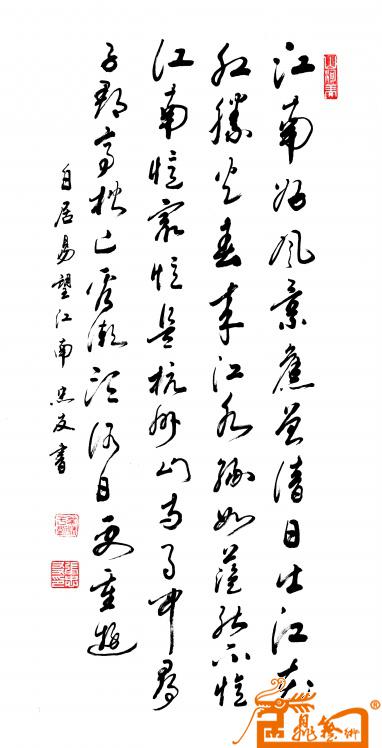 江南好风景舊曾諳日出江花
红勝火春来江水綠如蓝能不憶
江南憶最憶是杭州山寺月中尋
子郡亭枕上看潮頭何日更重遊
白居易望江南 忠友書